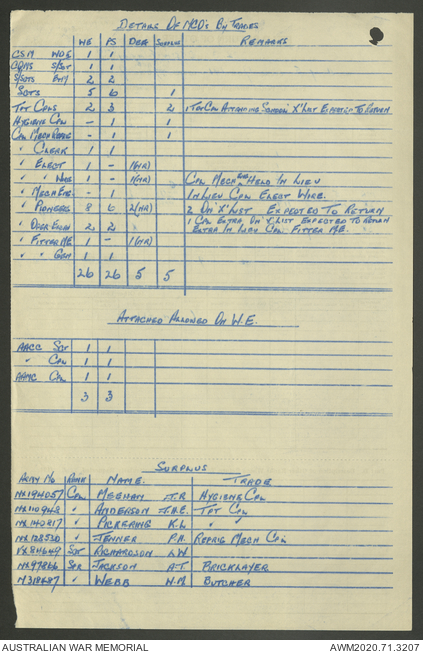 DETAILS OF NCO's BY TRADES
WE PS DEF SURPLUS REMARKS
CSM WO2 1 1
CQMS S/SGT 1 1
S/SGTS 2 2
SGTS 5 6 1
TPT CPLS 2 3 2 1 TPT CPL ATTENDING SCHOOL 'X' LIST EXPECTED TO RETURN
HYGIENE CPL - 1 1
CPL MECH REPRG - 1 1
" CLERK 1 1
" ELECT 1 - 1(HR)
" " WIRE 1 - 1(HR) CPL MECH HELD IN LIEU
" MECH EQ. - 1 IN LIEU CPL ELECT WIRE.
" PIONEERS 8 6 2(HR) 2 ON 'X' LIST EXPECTED TO RETURN
" 2 2 1 CPL EXTRA ON 'X' LIST EXPECTED TO RETURN
EXTRA IN LIEU CPL FITTER ME.
" FITTER ME 1 - 1(HR)
" " GEN 1 1
26 26 5 5
ATTACHED ALLOWED ON W.E.
AACC SGT 1 1
" CPL 1 1
AAMC CPL 1 1
3 3
SURPLUS
ARMY NO RANK NAME. TRADE
NX194057 CPL MEEHAN J.R HYGIENE CPL
NX110948 " ANDERSON J.H.E. TPT CPL
NX140817 " PICKERING K.L. " "
NX128530 " JENNER P.H. REPRG MECH CPL
VX84649 SGT RICHARDSON L.W.
NX97866 SPR JACKSON A.T. BRICKLAYER
N318687 " WEBB N.M. BUTCHER
AUSTRALIAN WAR MEMORIAL
AWM2020.71.3207